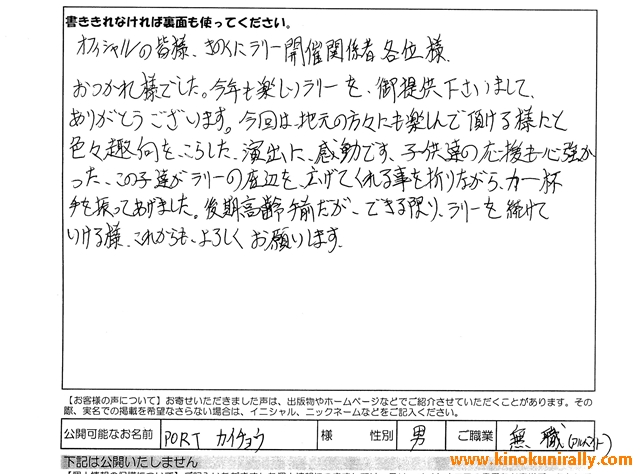 書ききれなければ裏面も使ってください。
オフィシャルの皆様、きのくにラリー開催関係者各位様、
おつかれ様でした。今年も楽しいラリーを、御提供下さいまして、
ありがとうございます。今回は地元の方々にも楽しんで頂ける様にと
色々趣向を、こらした、演出に、感動です、子供達の応援も心強か
った、この子達がラリーの底辺を、広げてくれる事を祈りながら、力一杯
手を振ってあげました。後期高齢手前だが、できる限り、ラリーを続けて
いける様、これからも、よろしくお願いします。
【お客様の声について】お寄せいただきました声は、出版物やホームページなどでご紹介させていただくことがあります。その
際、実名での掲載を希望なさらない場合は、イニシャル、ニックネームなどをご記入ください。
公開可能なお名前 PORT カイチョウ 様 性別 男 ご職業 無職(アルバイト)
下記は公開いたしません
www.kinokunirally.com